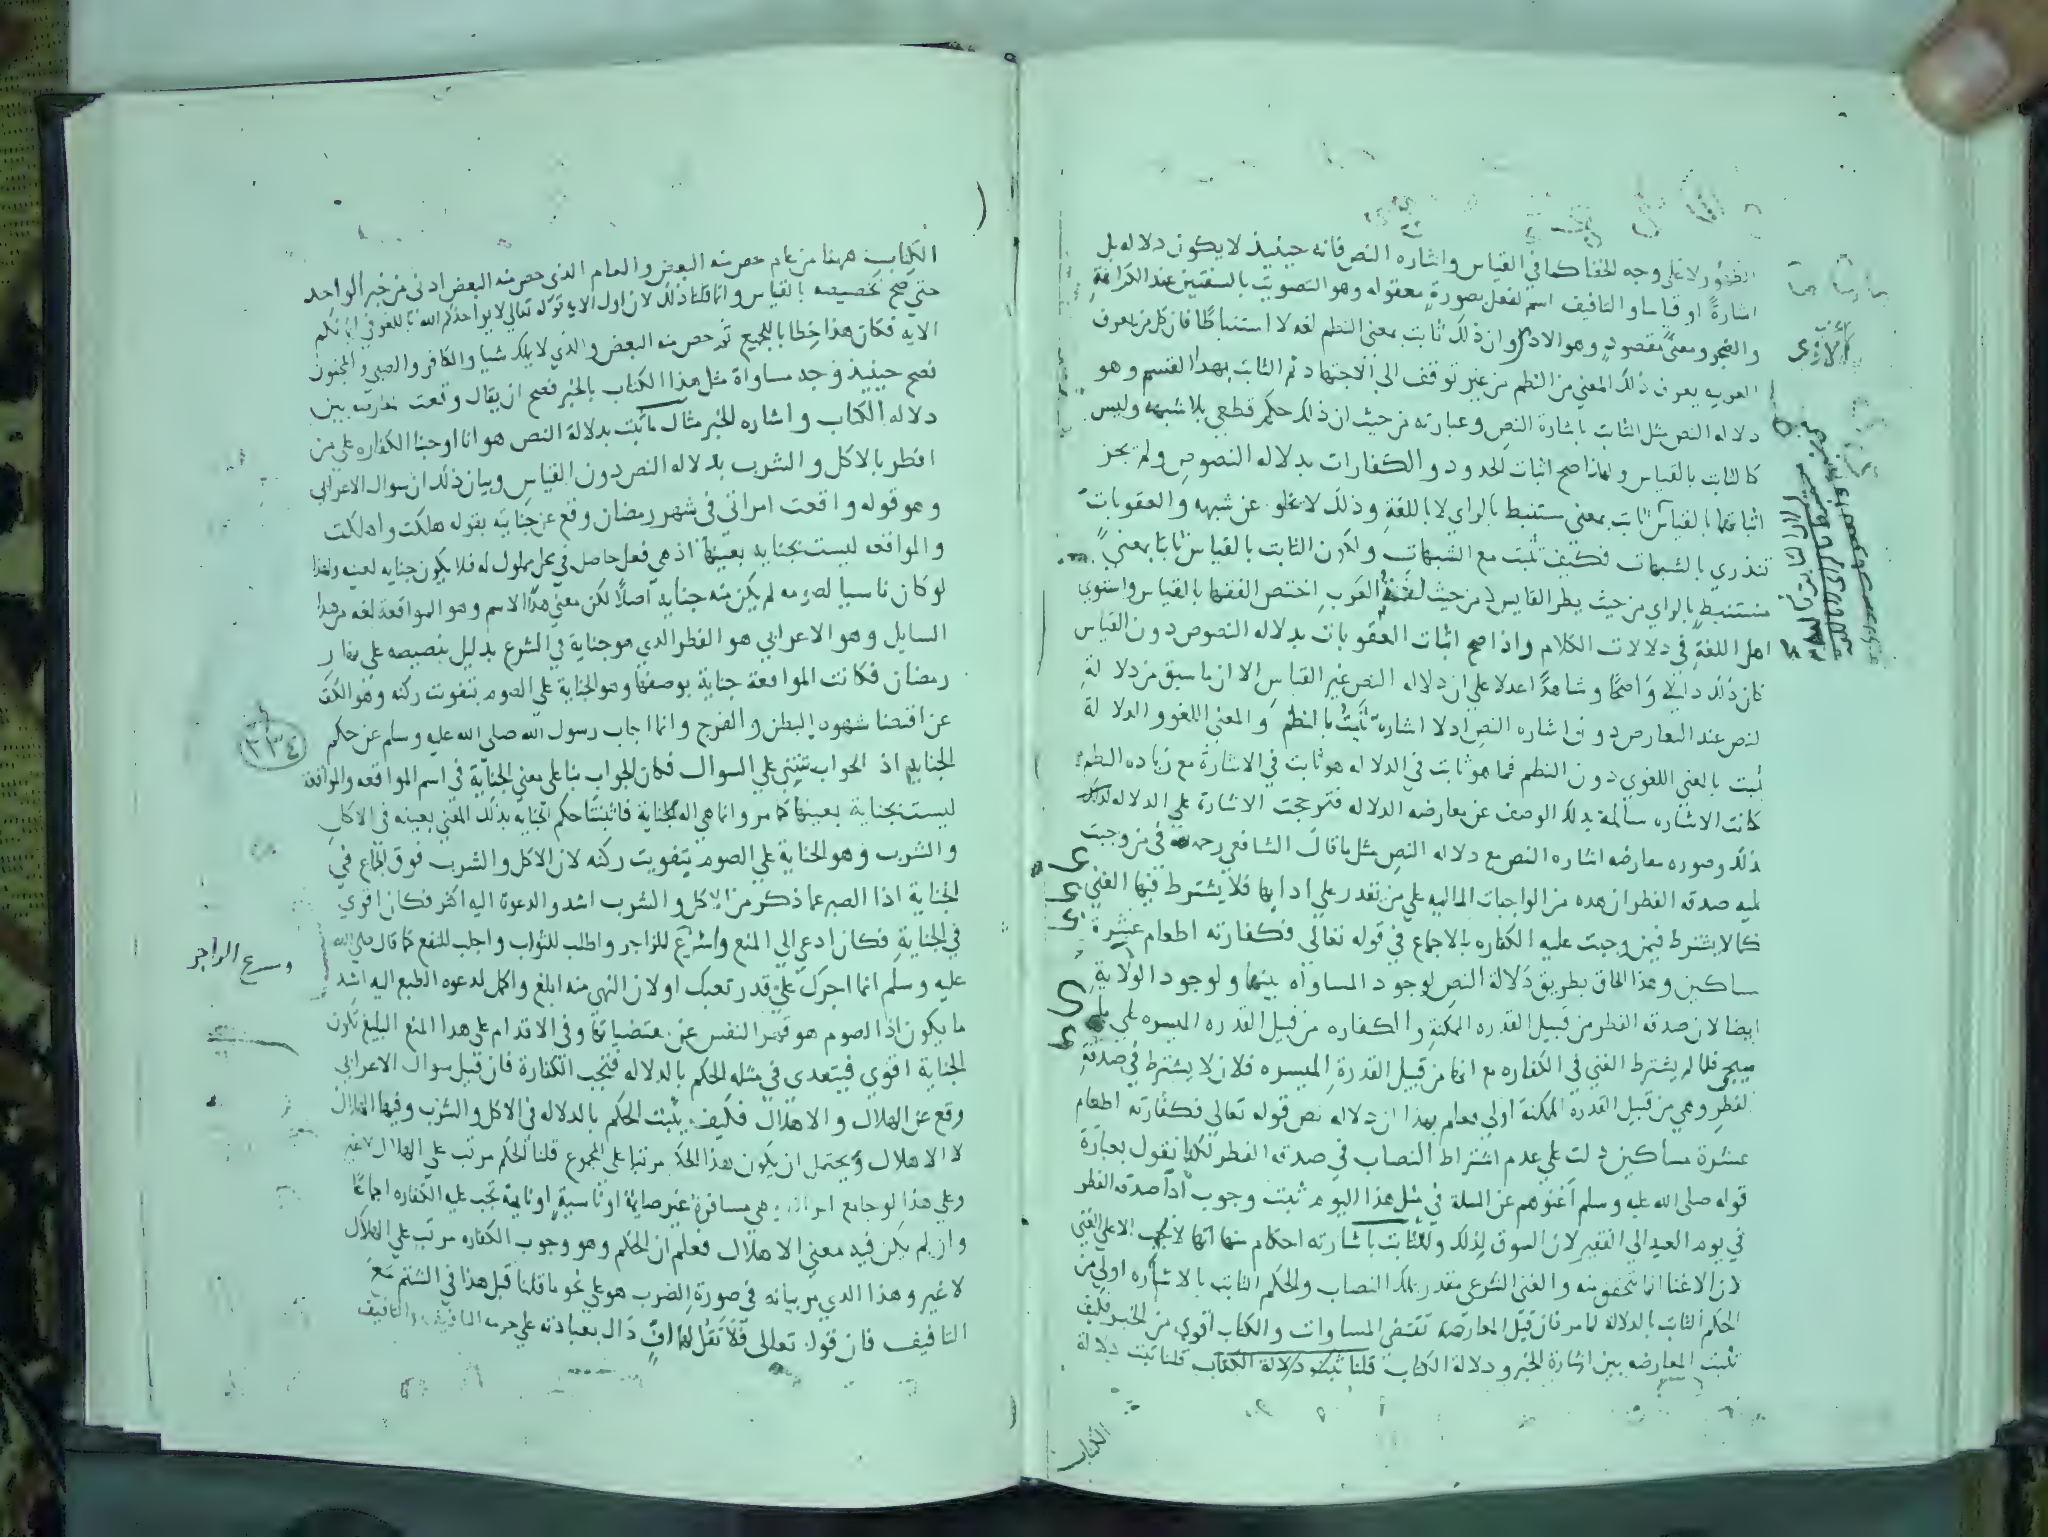 الظهور لا على وجه الخفا كما في القياس واشاره النص فانه حينيذ لا يكون دلاله بل
اشارةً او قياسا والتافيف اسم لفعل بصورةٍ معقوله وهو التصويت بالشفتين عند الكراهةِ
والضجر ومعنىً مقصودٍ وهو الاذى وان ذلك ثابت بمعنى النظم لغه لا استنباطًا فان كل من يعرف
العربيه يعرف ذلك المعني من النظم من غير توقف الى الاجتهاد ثم الثابت بهذا القسم وهو
دلاله النص مثل الثابت باشارة النص وعبارته من حيث ان ذلك حكم قطعي بلا شبهه وليس
كالثابت بالقياس ولهذا صح اثبات الحدود والكفارات بدلاله النصوص ولم يجز
اثباتهما بالقياس لانه ثابت بمعنى مستنبط بالراي لا باللغةِ وذلك لا يخلو عن شبهه والعقوبات
تندري بالشبهات فكيف تثبت مع الشبهات ولكون الثابت بالقياس ثابتا بمعنىً
مستنبطٍ بالراي من حيث نظر القايس لا من حيث لغة العرب اختص الفقها بالقياس واستوي
اهل اللغةِ في دلالات الكلام واذا صح اثبات العقوبات بدلاله النصوص دون القياس
كان ذلك دليلا واضحًا وشاهدًا اعدلا علي ان دلاله النص غير القياس الا ان ما سبق من دلالةِ
النص عند التعارض دون اشاره النص اذ لا اشارة ثابت بالنظم والمعنى اللغوي والدلالة
تثبت بالمعني اللغوي دون النظم فما هو ثابت في الدلاله هو ثابت في الاشارةِ مع زياده النظم
كانت الاشاره سالمة بذلك الوصف عن معارضه الدلاله فترجحت الاشارة علي الدلاله لذلك
ذلك وصوره معارضه اشاره النص مع دلاله النص مثل ما قال الشافعي رحمه الله في من وجبت
عليه صدقه الفطر ان هذه من الواجبات الماليه علي من تقدر علي ادايها فلا يشترط فيها الغني
كما لا يشترط فيمن وجبت عليه الكفاره بالاجماع في قوله تعالي فكفارته اطعام عشرة
مساكين وهذا الحاق بطريق دلالة النص لوجود المساواه بينهما ولوجود الولايةِ
ايضا لان صدقه الفطر من قبيل القدره الممكنةِ والكفاره من قبيل القدره الميسره علي ما
سيجي فلما لم يشترط الغني في الكفاره مع انها من قبيل القدرة الميسره فلان لا يشترط في صدقةِ
الفطرِ وهي من قبيل القدره الممكنة اولي فعلم بهذا ان دلاله نص قوله تعالي فكفارته اطعام
عشرة مساكين دلت علي عدم اشتراط النصاب في صدقه الفطر لكنا نقول بعبارة
قوله صلى الله عليه وسلم أغنوهم عن المسلة في مثل هذا اليوم ثبت وجوب أدآ صدقه الفطر
في يوم العيد الي الفقير لان السوق لذلك وللثابت باشارته احكام منها انها لا تجب الا علي الغني
لان الاغنا انما يتحقق منه والغني الشرعي مقدر بملك النصاب والحكم الثابت بالاشاره اولي من
الحكم الثابت بالدلالة لما مر فان قيل المعارضه تقتضي المساوات والكتاب اقوي من الخبر فكيف
تثبت المعارضه بين اشارة الخبر ودلالة الكتاب قلنا تثبت دلالة
الكتاب
الاذى
الكتاب ههنا من عام خص منه البعض والعام الذي خص منه البعض ادنى من خبر الواحد
حتي صح تخصيصه بالقياس وانما قلنا ذلك لان اول الايه قوله تعالي لا يواخذكم الله باللغو في ايمانكم
الايه فكان هذا خطابا للجميع ثم خص منه البعض والذي لا يملك شيا والكافر والصبي والمجنون
فصح حينيذ وجد مساواة مثل هذا الكتاب بالخبر فصح ان يقال وقعت معارضه بين
دلاله الكتاب واشاره الخبر مثال ما ثبت بدلالة النص هو انا اوجبنا الكفاره علي من
افطر بالاكل والشرب بدلاله النص دون القياس وبيان ذلك ان سوال الاعرابي
وهو قوله واقعت امراتي في شهر رمضان وقع عن جنايته بقوله هلكت واهلكت
والمواقعه ليست بجنايه بعينها اذ هي فعل حاصل في محل مملوك له فلا يكون جنايه لعينه ولهذا
لو كان ناسيا لصومه لم يكن منه جنايه اصلاً لكن معني هذا الاسم وهو المواقعة لغه من هذا
السايل وهو الاعرابي هو الفطر الذي هو جناية في الشرع بدليل تنصيصه علي نهار
رمضان فكانت المواقعة جناية بوصفها وهو الجناية علي الصوم بتفويت ركنه وهو الكف
عن اقتضا شهوه البطن والفرج وانما اجاب رسول الله صلى الله عليه وسلم عن حكم
الجنايه اذ الجواب تبتني علي السوال فكان الجواب بنا على معني الجناية في اسم المواقعه والمواقعة
ليست بجناية بعينها كما مر وانما هي اله الجناية فاثبتنا حكم الجنايه بذلك المعني بعينه في الاكل
والشرب وهو الجناية علي الصوم بتفويت ركنه لان الاكل والشرب فوق الجماع في
الجناية اذا الصبر عما ذكر من الاكل والشرب اشد والدعوة اليه اكثر فكان اقوي
في الجنايةِ فكان ادعي الي المنع واشرع للزاجر واطلب للثواب واجلب للنفع كما قال صلى الله
عليه وسلم انما اجرك علي قدر تعبك اولان النهي منه ابلغ واكمل لدعوه الطبع اليه اشد
ما يكون اذ الصوم هو قهر النفس عن مقتضياتها وفي الاقدام على هذا المنع البليغ تكون
الجناية اقوي فيتعدي في مثله الحكم بالدلاله فتجب الكفارة فان قيل سوال الاعرابي
وقع عن الهلاك والاهلاك فكيف يثبت الحكم بالدلاله في الاكل والشرب وفيها الهلاك
لا الاهلاك ويحتمل ان يكون هذا الحكم مرتبا على المجموع قلنا الحكم مرتب علي الهلاك لا غير
وعلي هذا لو جامع امراته وهي مسافرة غير صايمة او ناسية او نايمة تجب عليه الكفاره اجماعًا
وان لم يكن فيه معني الاهلاك فعلم ان الحكم وهو وجوب الكفاره مرتب علي الهلاك
لا غير وهذا الذي مر بيانه في صورة الضرب هو على نحو ما قلنا قبل هذا في الشتم مَعَ
التافيف فان قوله تعالى فَلَا تَقُل لهُمَا اُفٍّ دال بعبارته علي حرمه التافيف والتافيف
٢٣٤
وسرع الزاجر